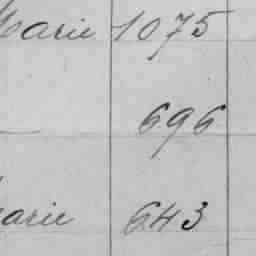 Marie 1075
696
Marie 643